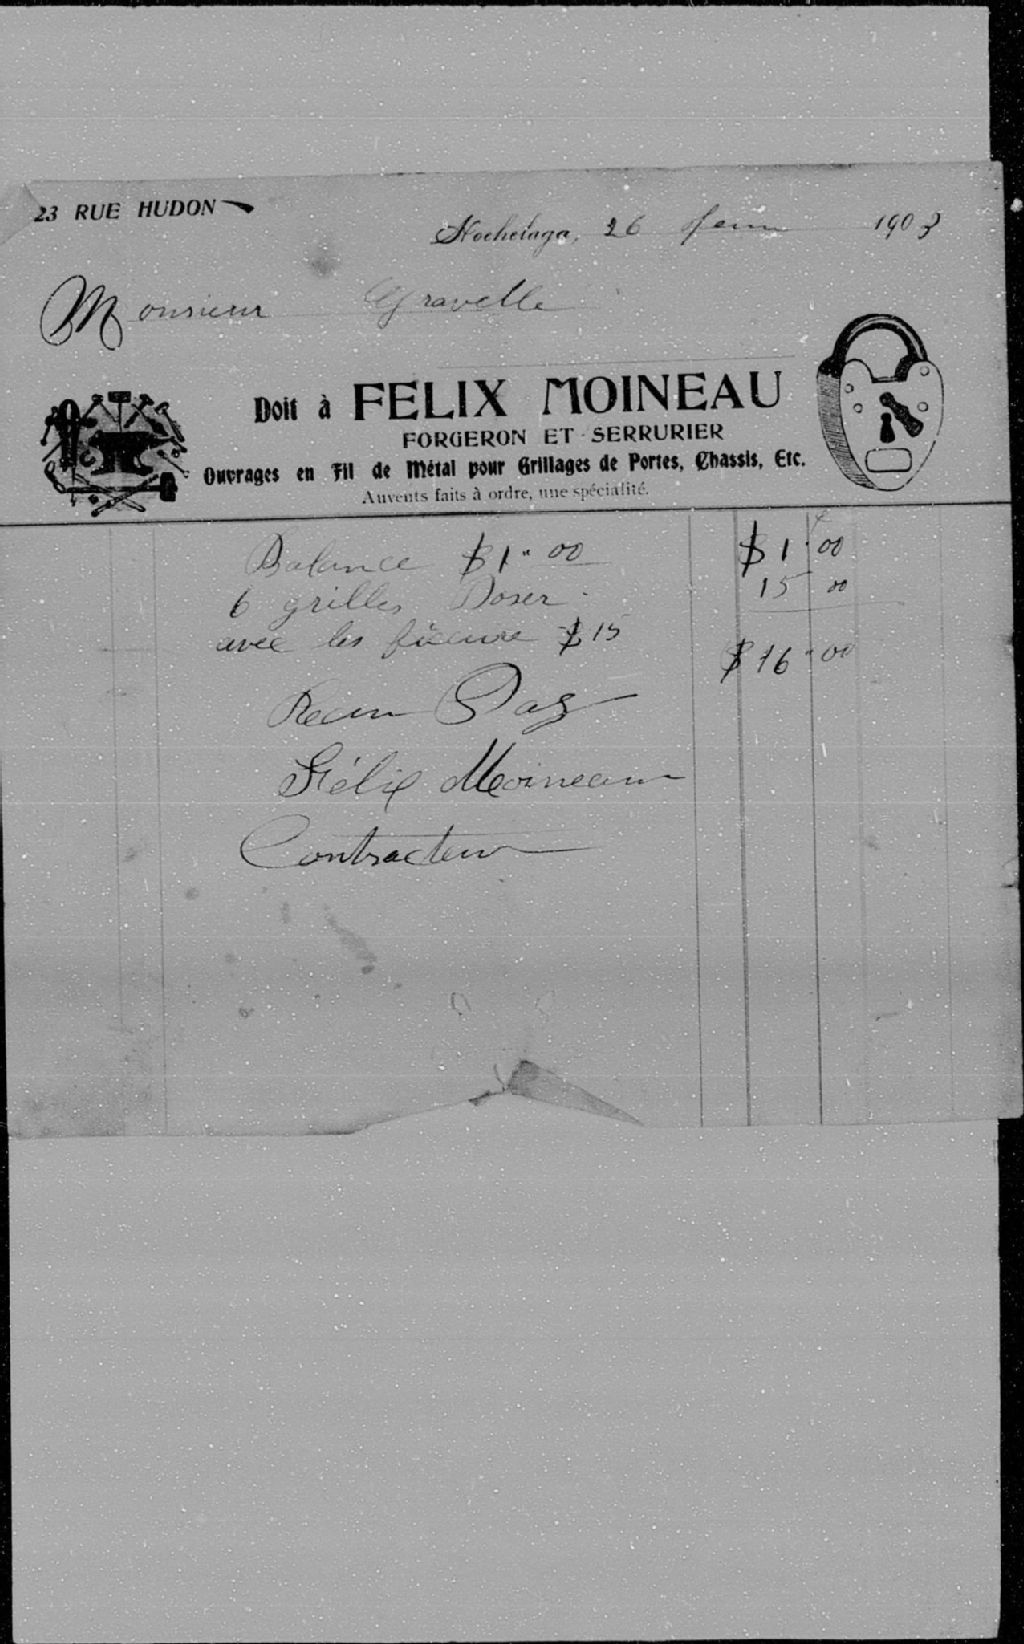 23 RUE HUDON
Hochelaga, 26 1903
Monsieur Gravelle
Doit à FELIX MOINEAU
FORGERON ET SERRURIER
Ouvrages en Fil de Métal pour Grillages de Portes, Chassis, Etc.
Auvents faits à ordre, une spécialité.
Balance $1.00 $1.00
6 grilles Poser 15 00
avec les $15
$16.00
Recu Pay
Félix Moineau
Contracteur